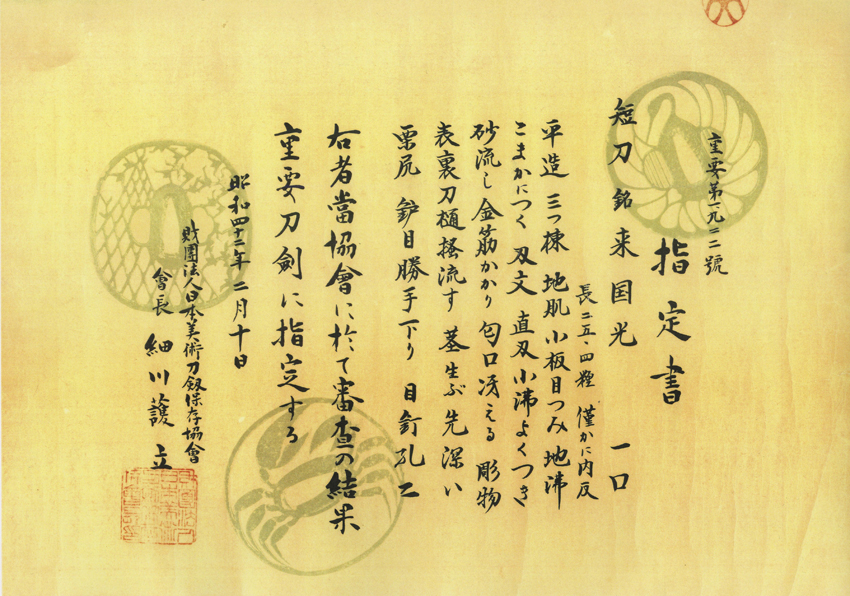 重要第一九二二號
指定書
短刀 銘 来国光 一口
長二五・四糎 僅かに内反
平造 三つ棟 地肌 小板目つみ 地沸
こまかにつく 刃文 直刃 小沸よくつき
砂流し 金筋かかり 匂口冴える 彫物
表裏刀樋掻流す 茎生ぶ 先深い
栗尻 鈩目勝手下り 目釘孔二
右者當協會に於て審査の結果
重要刀剣に指定する
昭和四十二年二月十日
財團法人日本美術刀剱保存協會
會長 細川護立